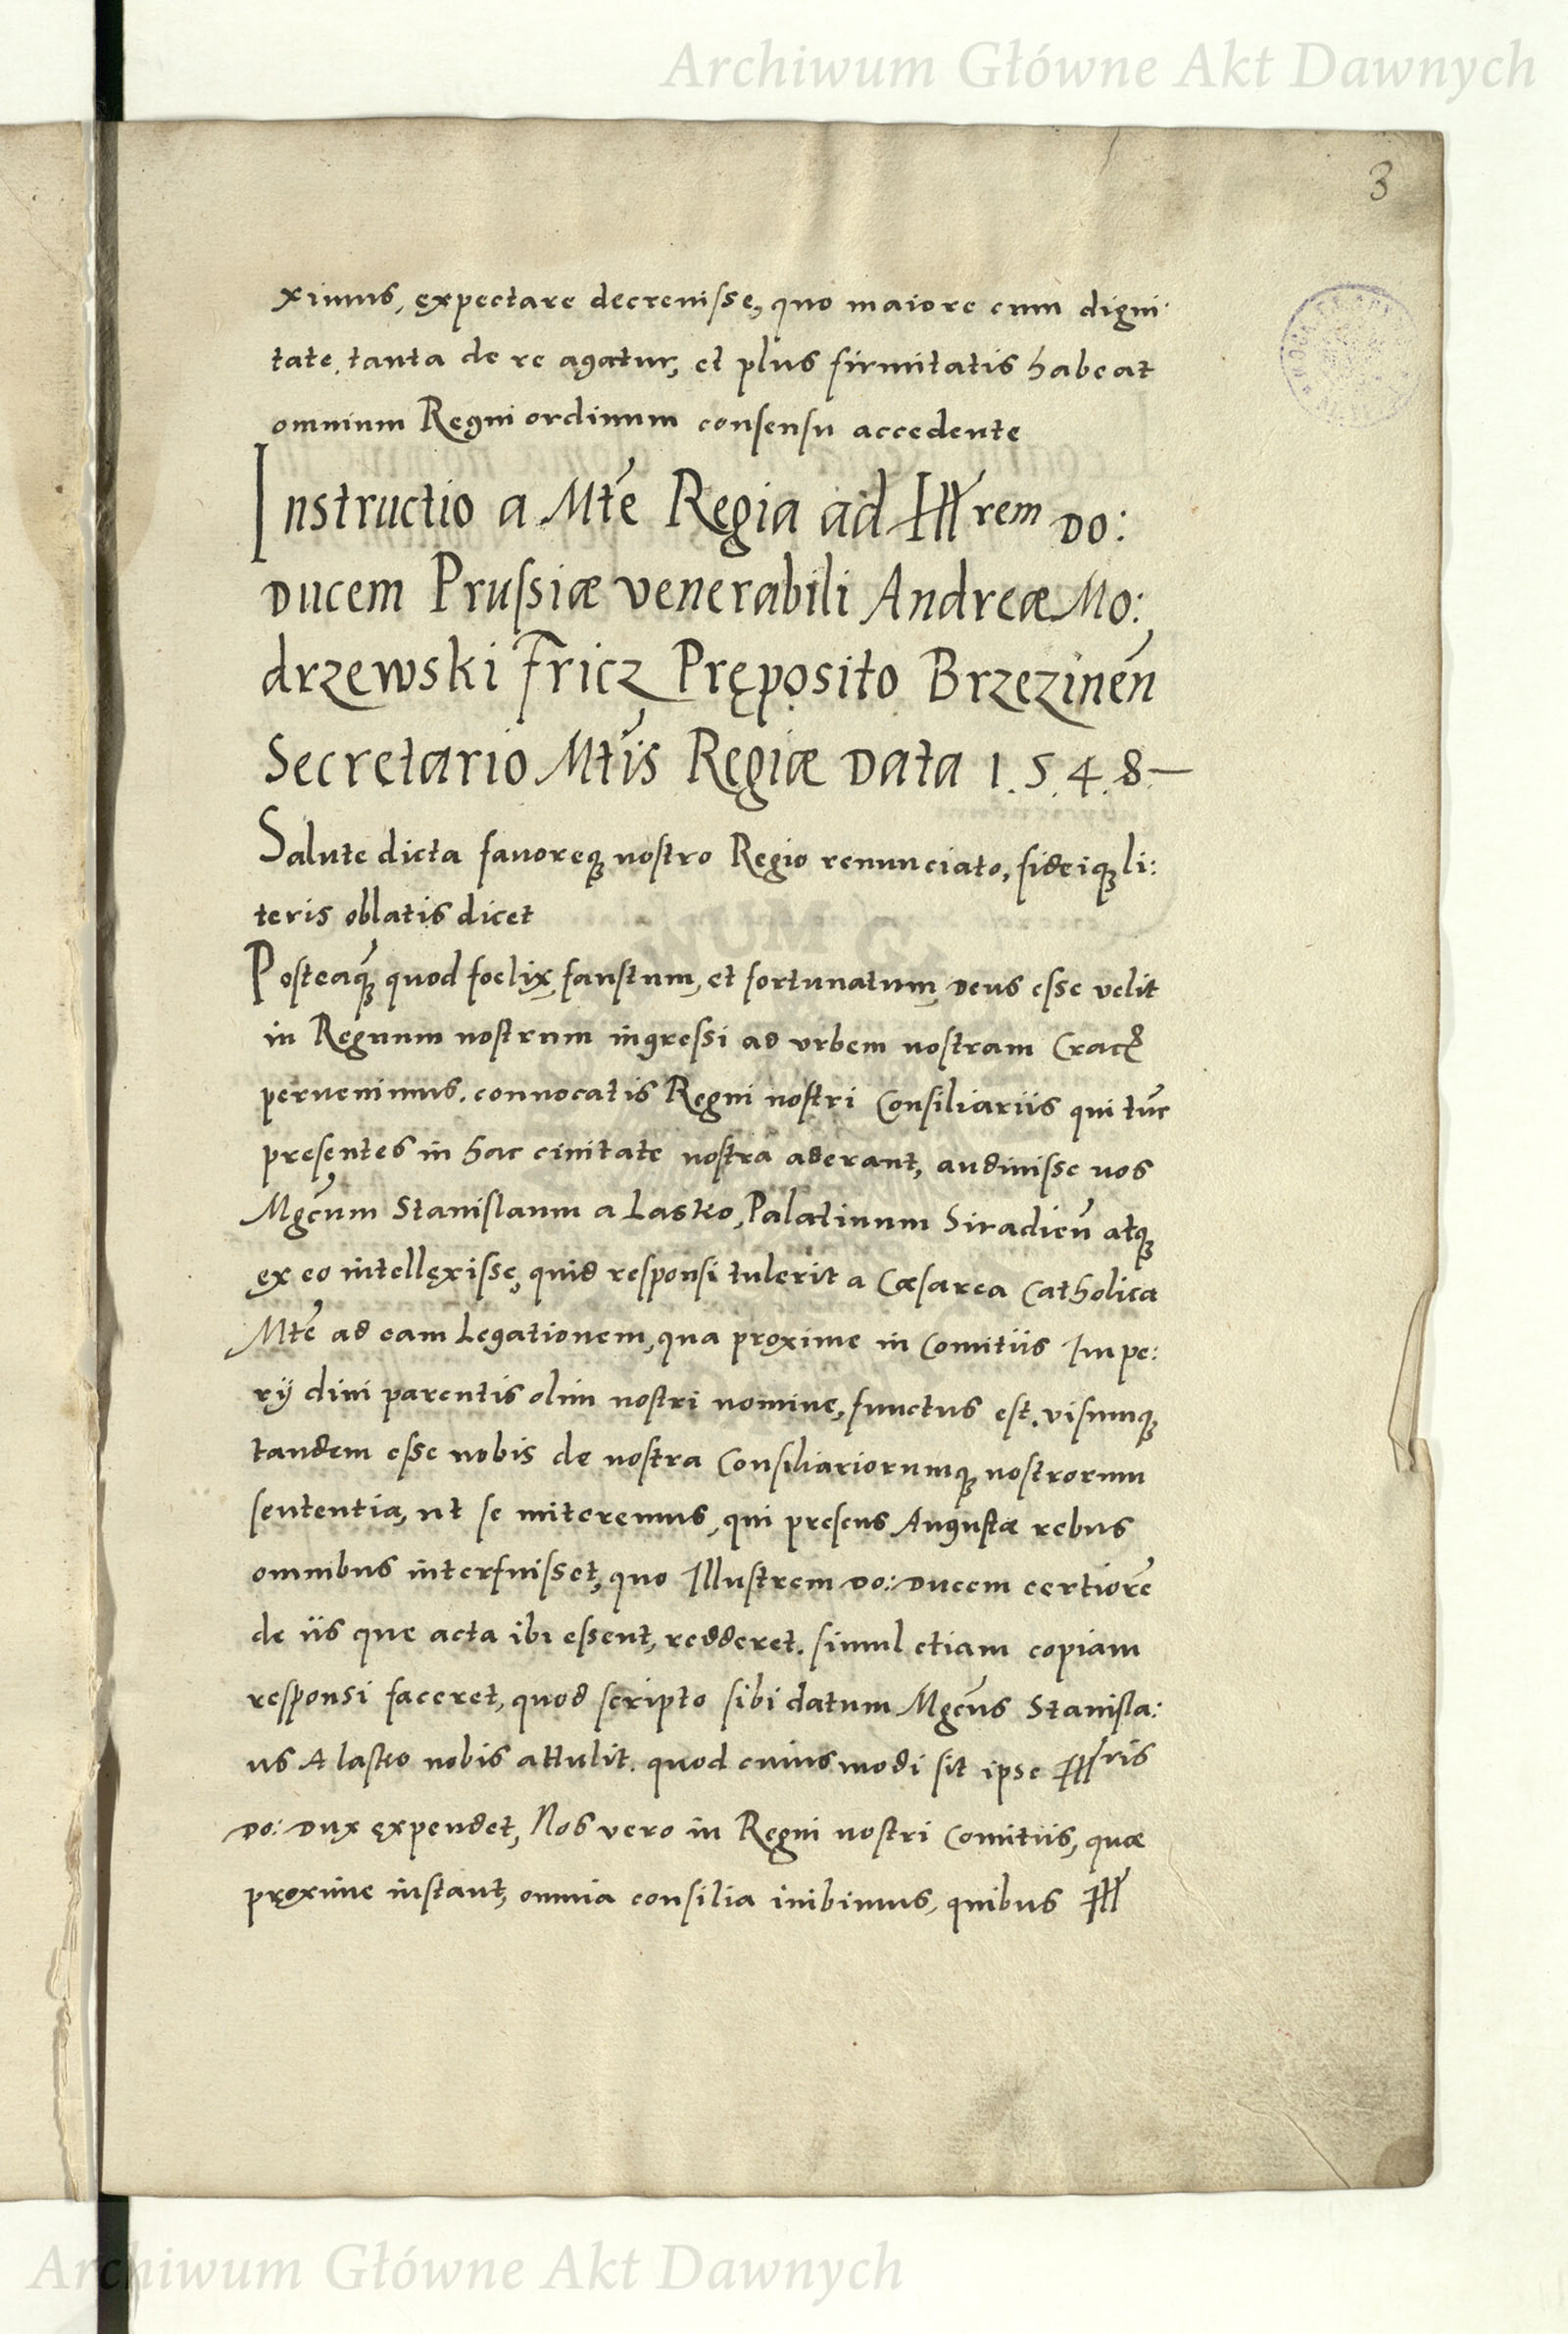 Archiwum Główne Akt Dawnych
3
ximus, expectare decrevisse, quo maiore cum digni
tate, tanta de re agatur, et plus firmitatis habeat
omnium Regni ordinum consensu accedente
Instructio a Mte͂ Regia ad Illrem Do:
Ducem Prussiæ venerabili Andreæ Mo:
drzewski Fricz Pręposito Brzezinen͂
Secretario Mtis͂ Regiæ Data 1.5.4.8.—
Salute dicta favoreqꝫ nostro Regio renunciato, fideiqꝫ li:
teris oblatis dicet
Posteaqꝫ̃ quod foelix, faustum, et fortunatum, Deus esse velit
in Regnum nostrum ingressi ad urbem nostram Crac
pervenimus, convocatis Regni nostri Consiliariis qui tu͂c
presentes in hac civitate nostra aderant, audivisse nos
Mgc͂um Stanislaum a Lasko, Palatinum Siradien͂ atqꝫ
ex eo intellexisse, quid responsi tulerit a Cæsarea Catholica
Mte͂ ad eam Legationem, qua proxime in Comitiis Impe:
rij divi parentis olim nostri nomine, functus est, visumqꝫ
tandem esse nobis de nostra Consiliariorumqꝫ nostrorum
sententia, ut se miteremus, qui presens Augustæ rebus
omnibus interfuisset, quo Illustrem Do: Ducem certiore͂
de iis que acta ibi essent, redderet. simul etiam copiam
responsi faceret, quod scripto sibi datum Mgc͂us Stanisla:
us A lasko nobis attulit. quod cuiusmodi sit ipse Illris
Do: Dux expendet, Nos vero in Regni nostri Comitiis, quæ
proxime instant, omnia consilia inibimus, quibus Ill
Archiwum Główne Akt Dawnych